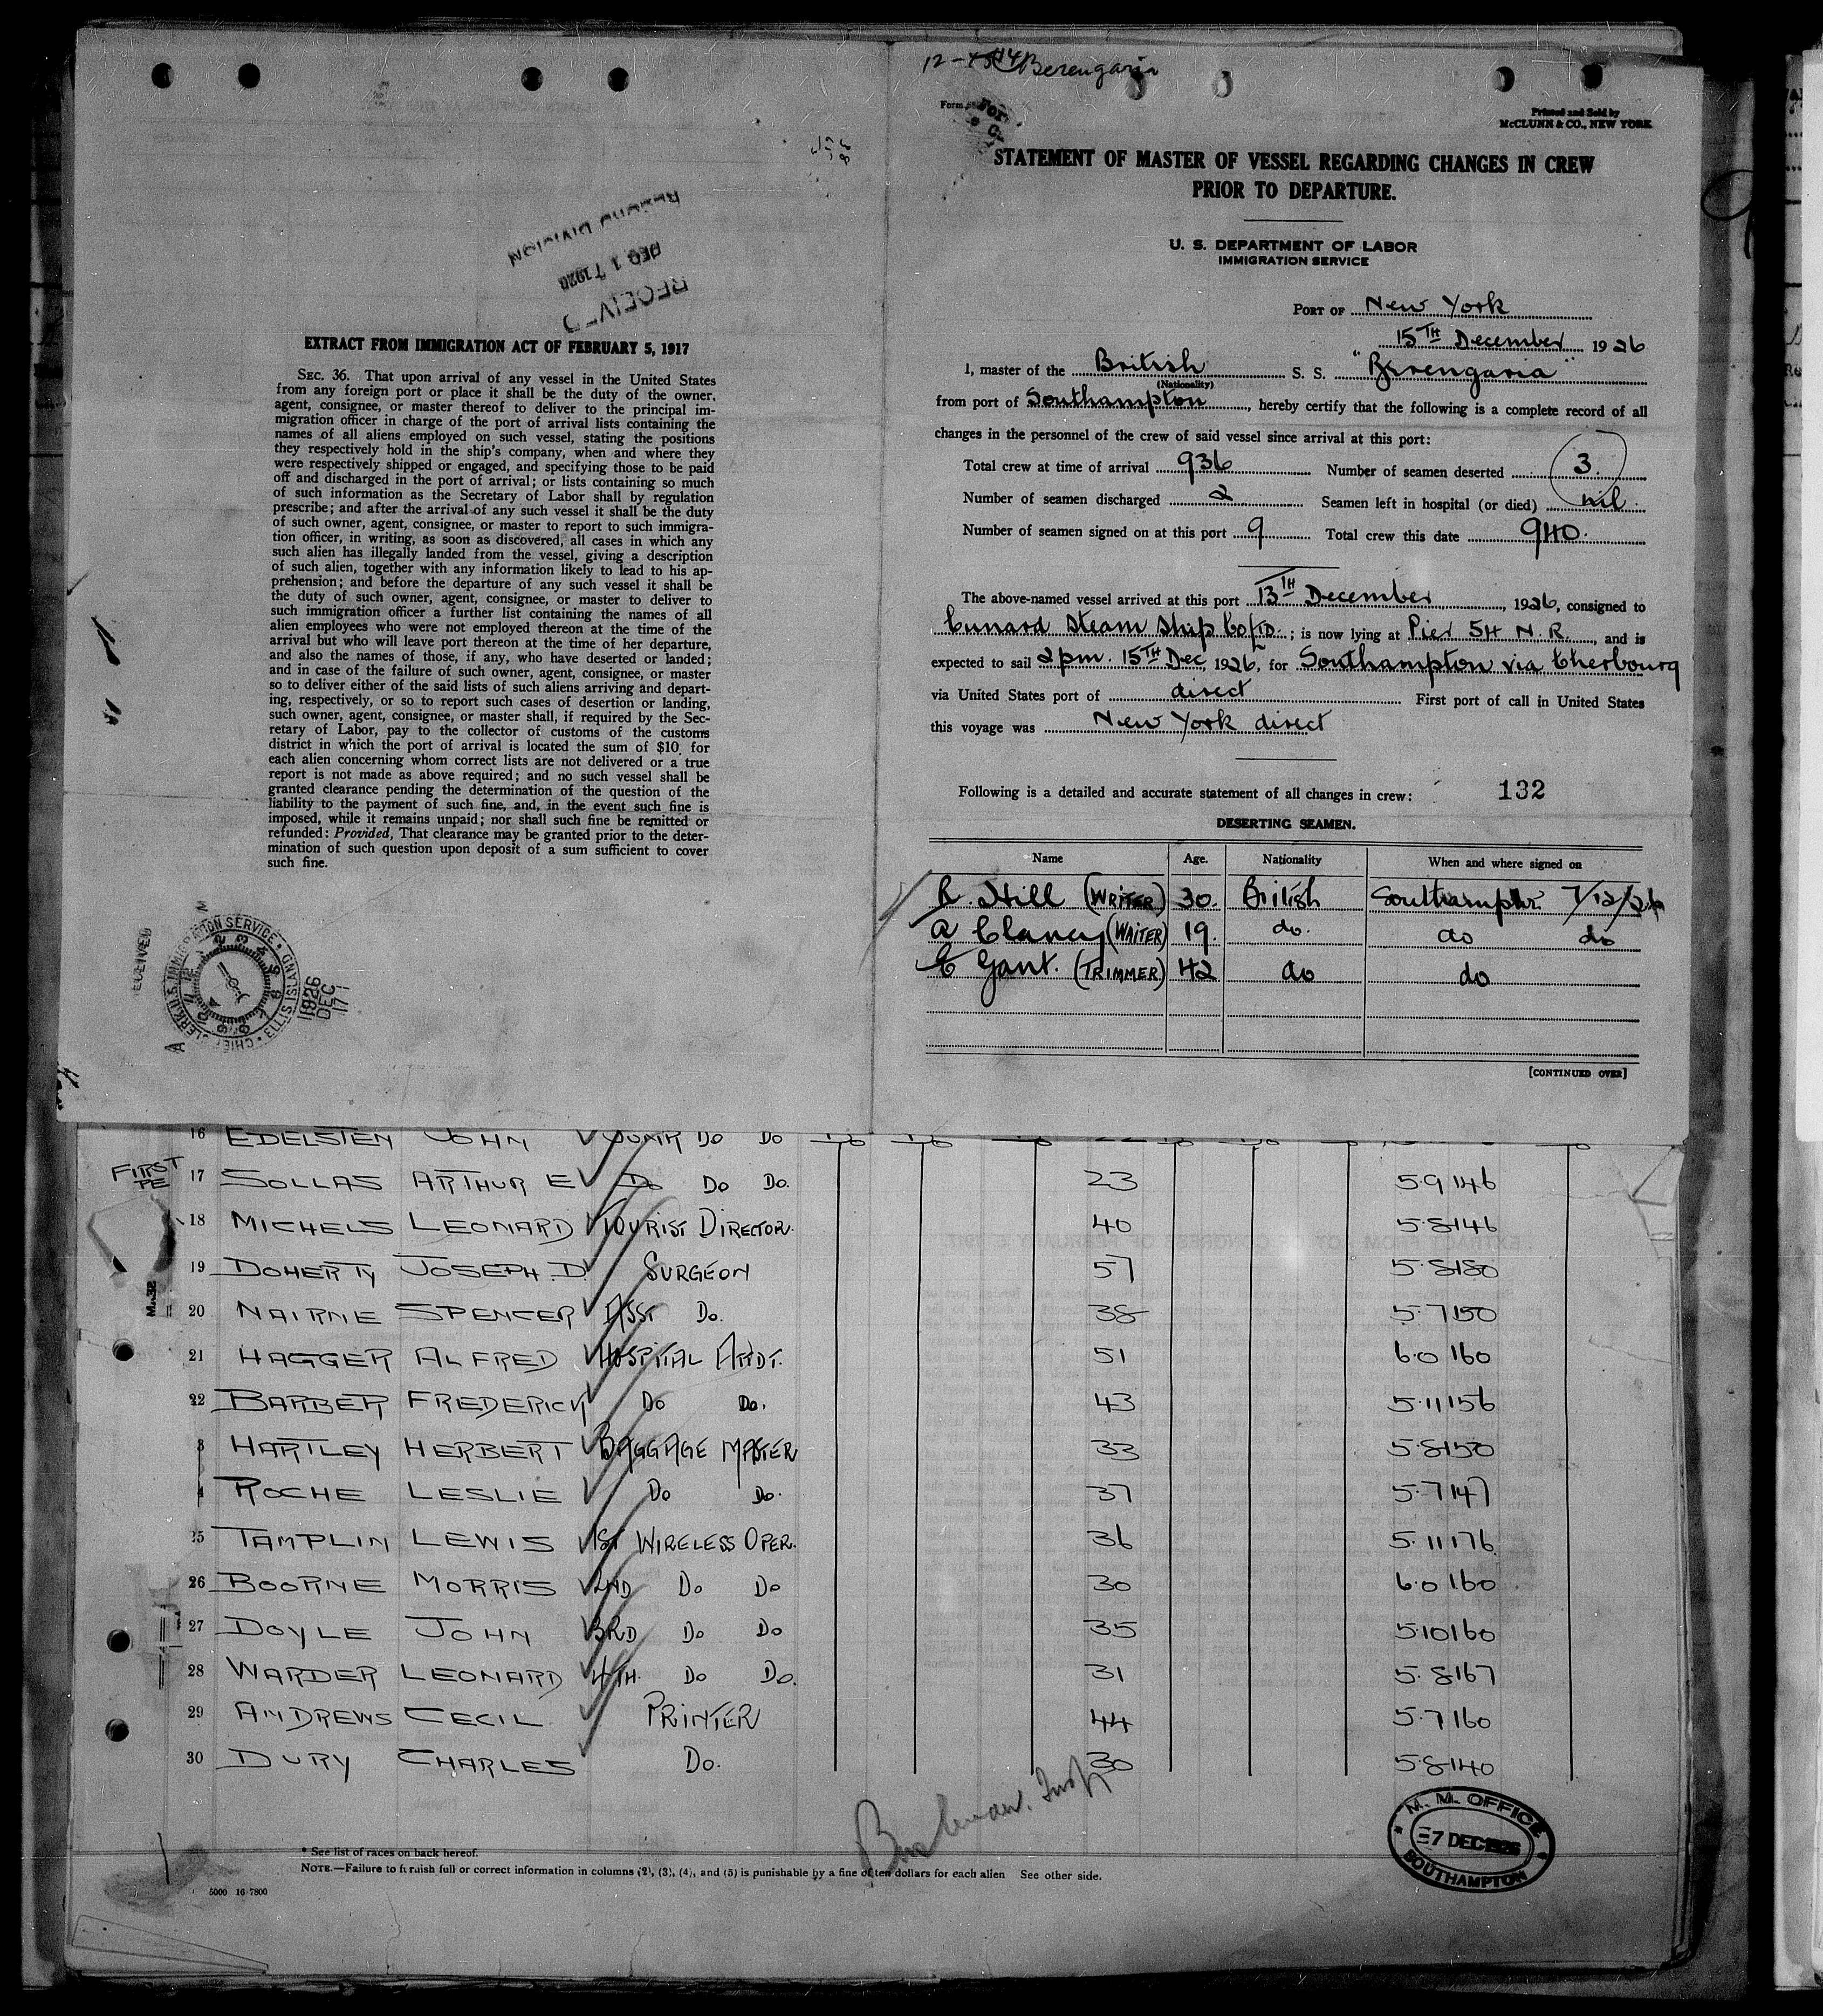 RECEIVED
DEC 17 1926
RECORD DIVISION
EXTRACT FROM IMMIGRATION ACT OF FEBRUARY 5, 1917
SEC. 36. That upon arrival of any vessel in the United States
from any foreign port or place it shall be the duty of the owner,
agent, consignee, or master thereof to deliver to the principal im-
migration officer in charge of the port of arrival lists containing the
names of all aliens employed on such vessel, stating the positions
they respectively hold in the ship's company, when and where they
were respectively shipped or engaged, and specifying those to be paid
off and discharged in the port of arrival; or lists containing so much
of such information as the Secretary of Labor shall by regulation
prescribe; and after the arrival of any such vessel it shall be the duty
of such owner, agent, consignee, or master to report to such immigra-
tion officer, in writing, as soon as discovered, all cases in which any
such alien has illegally landed from the vessel, giving a description
of such alien, together with any information likely to lead to his ap-
prehension; and before the departure of any such vessel it shall be
the duty of such owner, agent, consignee, or master to deliver to
such immigration officer a further list containing the names of all
alien employees who were not employed thereon at the time of the
arrival but who will leave port thereon at the time of her departure,
and also the names of those, if any, who have deserted or landed;
and in case of the failure of such owner, agent, consignee, or master
so to deliver either of the said lists of such aliens arriving and depart-
ing, respectively, or so to report such cases of desertion or landing,
such owner, agent, consignee, or master shall, if required by the Sec-
retary of Labor, pay to the collector of customs of the customs
district in which the port of arrival is located the sum of $10 for
each alien concerning whom correct lists are not delivered or a true
report is not made as above required; and no such vessel shall be
granted clearance pending the determination of the question of the
liability to the payment of such fine, and, in the event such fine is
imposed, while it remains unpaid; nor shall such fine be remitted or
refunded: Provided, That clearance may be granted prior to the deter-
mination of such question upon deposit of a sum sufficient to cover
such fine.
RECEIVED
CHIEF CLERK U.S. IMMIGRATION SERVICE • ELLIS ISLAND
1926
DEC
17
Berengaria
Form
Printed and Sold by
McCLUNN & CO., NEW YORK
STATEMENT OF MASTER OF VESSEL REGARDING CHANGES IN CREW
PRIOR TO DEPARTURE.
U. S. DEPARTMENT OF LABOR
IMMIGRATION SERVICE
PORT OF New York
15TH December 1926
I, master of the British S. S. "Berengaria"
(Nationality)
from port of Southampton, hereby certify that the following is a complete record of all
changes in the personnel of the crew of said vessel since arrival at this port:
Total crew at time of arrival 936 Number of seamen deserted 3.
Number of seamen discharged 2 Seamen left in hospital (or died) nil.
Number of seamen signed on at this port 9 Total crew this date 940.
The above-named vessel arrived at this port 13TH December, 1926, consigned to
Cunard Steam Ship Co LTD.; is now lying at Pier 54 N. R., and is
expected to sail 2pm. 15TH Dec, 1926, for Southampton via Cherbourg
via United States port of direct First port of call in United States
this voyage was New York direct
Following is a detailed and accurate statement of all changes in crew: 132
DESERTING SEAMEN.
Name Age. Nationality When and where signed on
Hill (WRITER) 30. British Southampton 7/12/26
A Clancy (WAITER) 19. do. do do
E Gant. (TRIMMER) 42 do do
[CONTINUED OVER]
16 EDELSTEN JOHN JUNR DO DO
FIRST
17 SOLLAS ARTHUR E DO DO DO. 23 5.9 146
18 MICHELS LEONARD TOURIST DIRECTOR. 40 5.8 146
19 DOHERTY JOSEPH. D. SURGEON 57 5.8 180
20 NAIRNE SPENCER ASST DO. 38 5.7 150
21 HAGGER ALFRED HOSPITAL ATTDT. 51 6.0 160
22 BARBER FREDERICK DO DO. 43 5.11 156
3 HARTLEY HERBERT BAGGAGE MASTER 33 5.8 150
4 ROCHE LESLIE DO DO. 37 5.7 147
25 TAMPLIN LEWIS 1ST WIRELESS OPER. 36 5.11 176
26 BOORNE MORRIS 2ND DO DO 30 6.0 160
27 DOYLE JOHN 3RD DO DO 35 5.10 160
28 WARDER LEONARD 4TH. DO DO. 31 5.8 167
29 ANDREWS CECIL PRINTER 44 5.7 160
30 DURY CHARLES DO. 30 5.8 140
M. M. OFFICE
7 DEC 1926
SOUTHAMPTON
* See list of races on back hereof.
NOTE.—Failure to furnish full or correct information in columns (2), (3), (4), and (5) is punishable by a fine of ten dollars for each alien See other side.
5000 16-7800